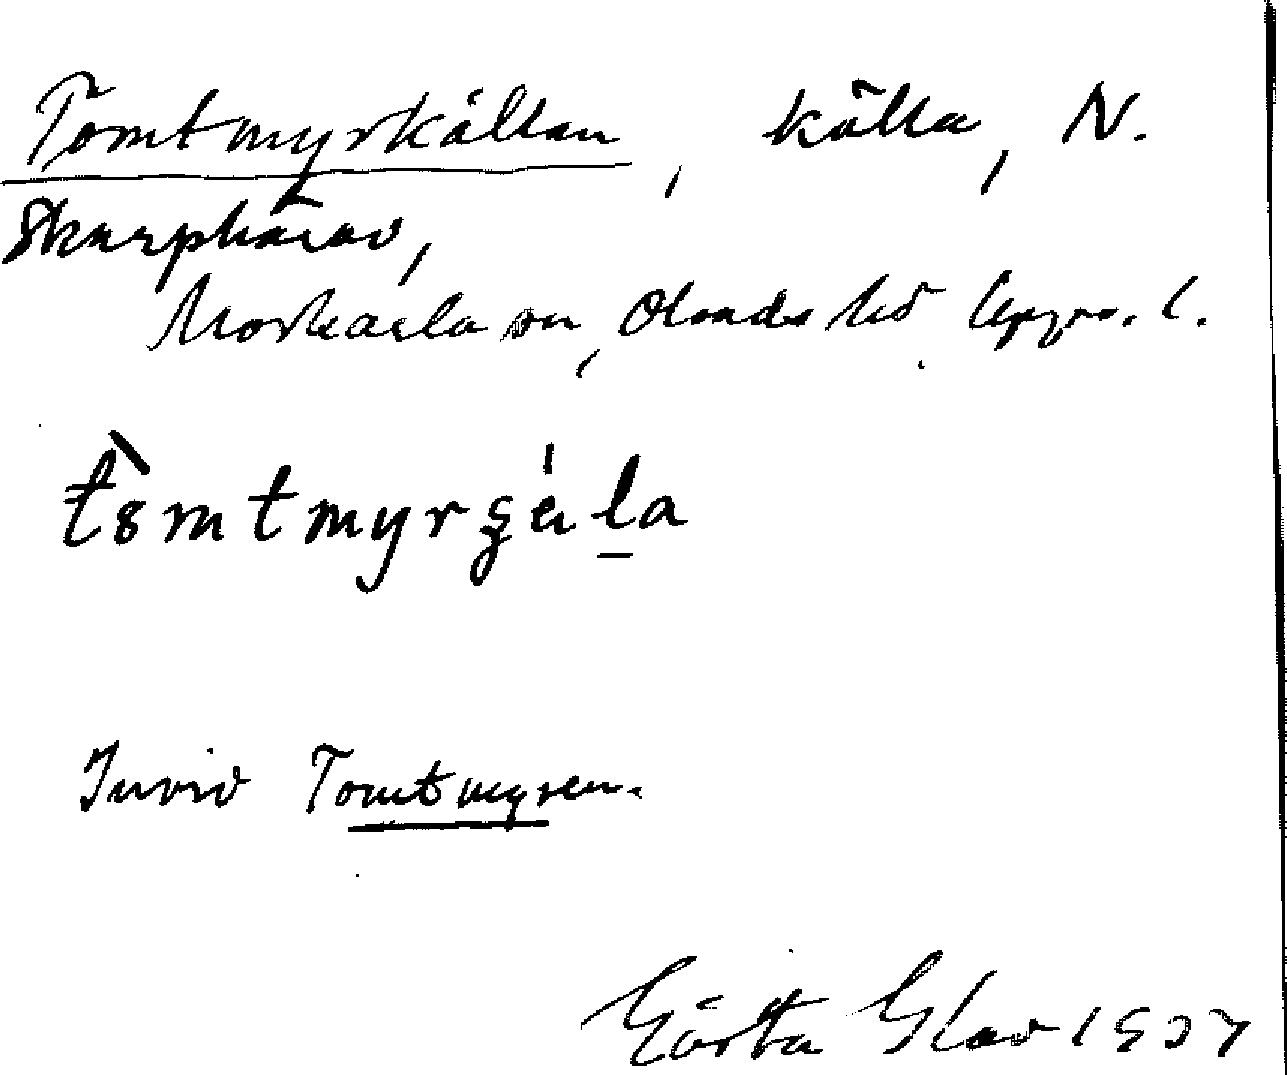 Tomtmyrkällan, källa, N.
Skarpharad,
Morkarla sn, Olands hd Upps. l.
Invid Tomtmyren.
Gösta Glad 1937